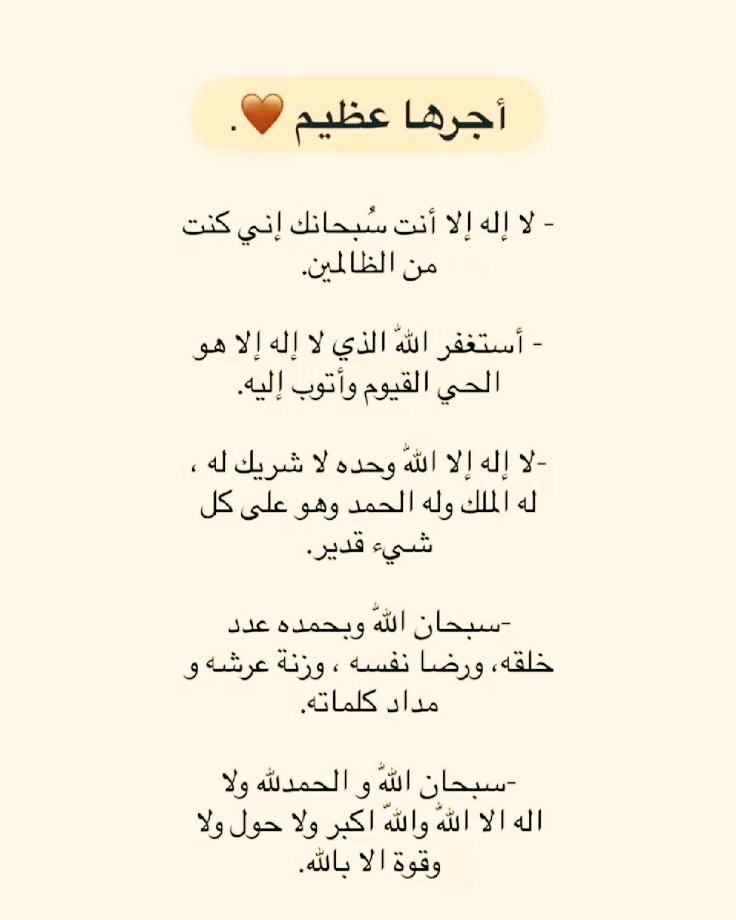 أجرها عظيم 🤎.
- لا إله إلا أنت سُبحانك إني كنت
من الظالمين.
- أستغفر الله الذي لا إله إلا هو
الحي القيوم وأتوب إليه.
-لا إله إلا الله وحده لا شريك له ،
له الملك وله الحمد وهو على كل
شيء قدير.
-سبحان الله وبحمده عدد
خلقه، ورضا نفسه ، وزنة عرشه و
مداد كلماته.
-سبحان الله و الحمدلله ولا
اله الا الله والله اكبر ولا حول ولا
وقوة الا بالله.